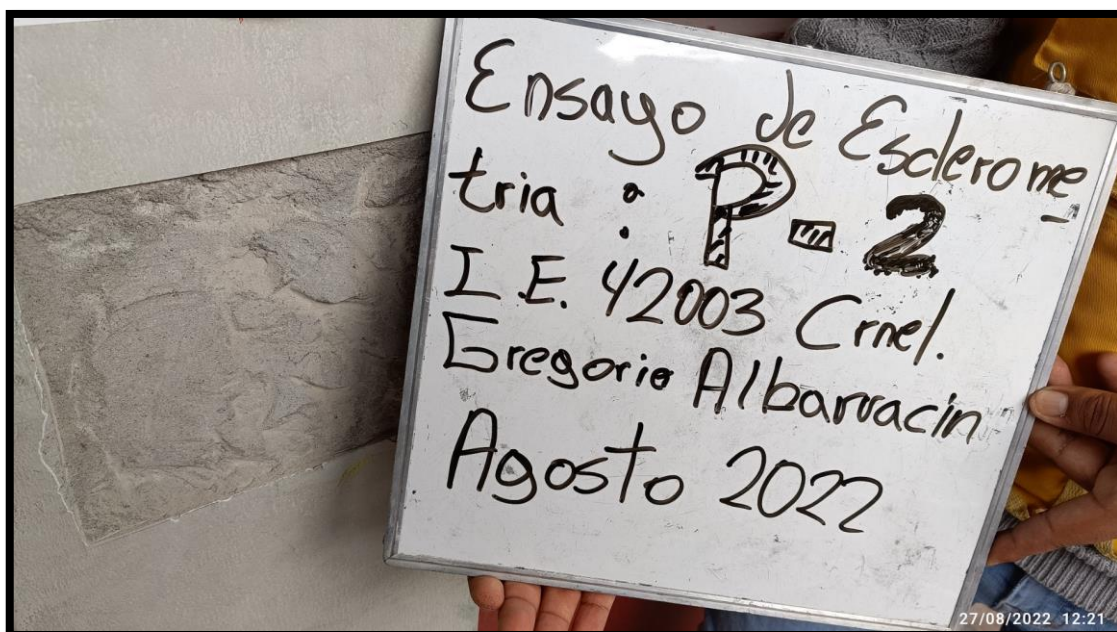 Ensayo de Esclerome
tria : P-2
I.E. 42003 Crnel.
Gregorio Albarracin
Agosto 2022
27/08/2022 12:21